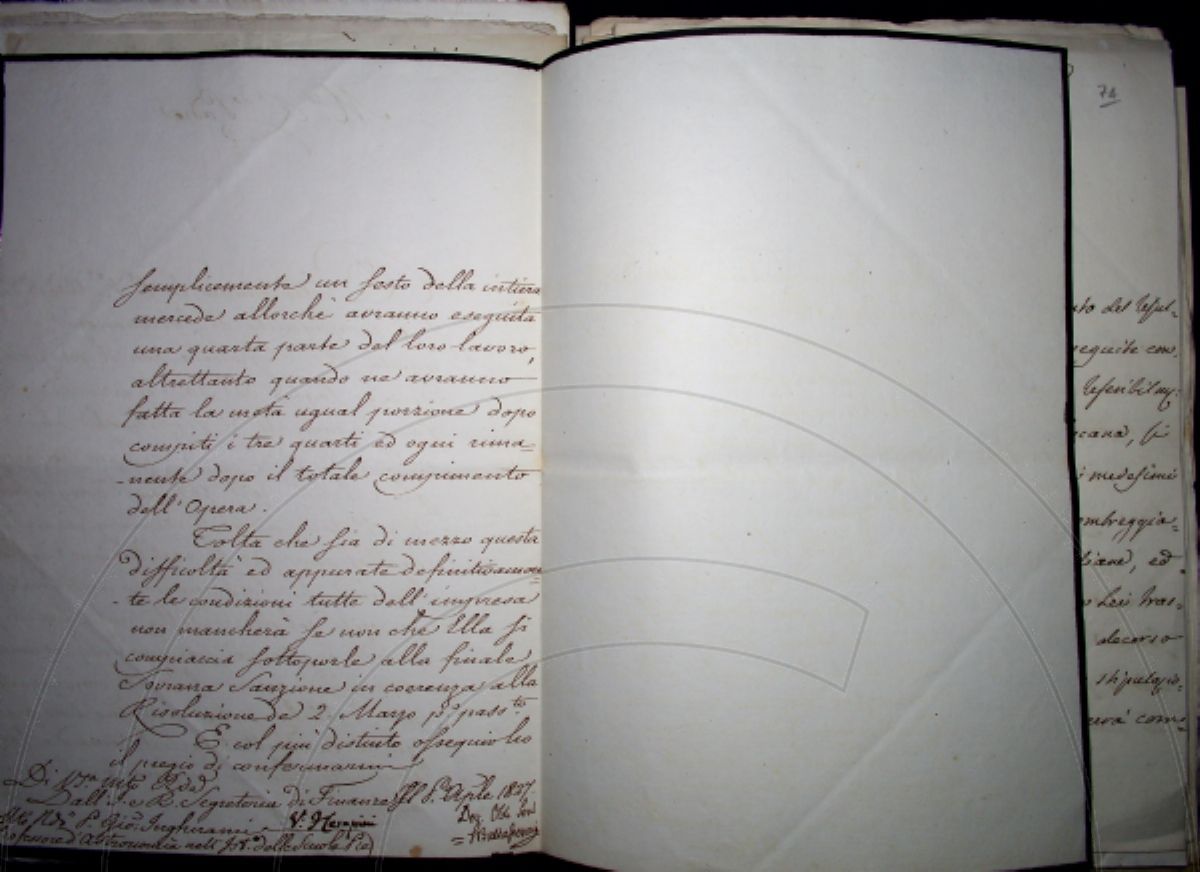 semplicemente un sesto della intiera
mercede allorchè avranno eseguita
una quarta parte del loro lavoro,
altrettanto quando ne avranno
fatta la metà ugual porzione dopo
compiti i tre quarti ed ogni rima=
=nente dopo il totale compimento
dell'Opera.
Tolta che sia di mezzo questa
difficoltà ed appurate definitivamen=
=te le condizioni tutte dell'impresa
non mancherà se non che Ella si
compiaccia sottoporle alla finale
Sovrana Sanzione in coerenza alla
Risoluzione de' 2. Marzo p.º pass.to
E col più distinto ossequio ho
il pregio di confermarmi
Di
Dall'I. e R. Segreteria di Finanze Aple. 1827.
Dev.
P. Gio. Inghirami
Professore d'Astronomia nell' delle Scuole Pie
74
to del
eguite con
cana, si
medesimi
ombreggia=
liane, ed
Lei tras=
decorso
stipulazio=
com=